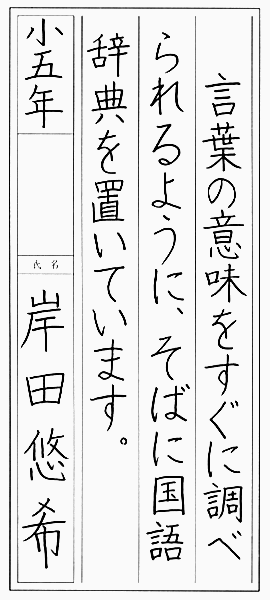 言葉の意味をすぐに調べ
られるように、そばに国語
辞典を置いています。
小五年
氏名
岸田悠希